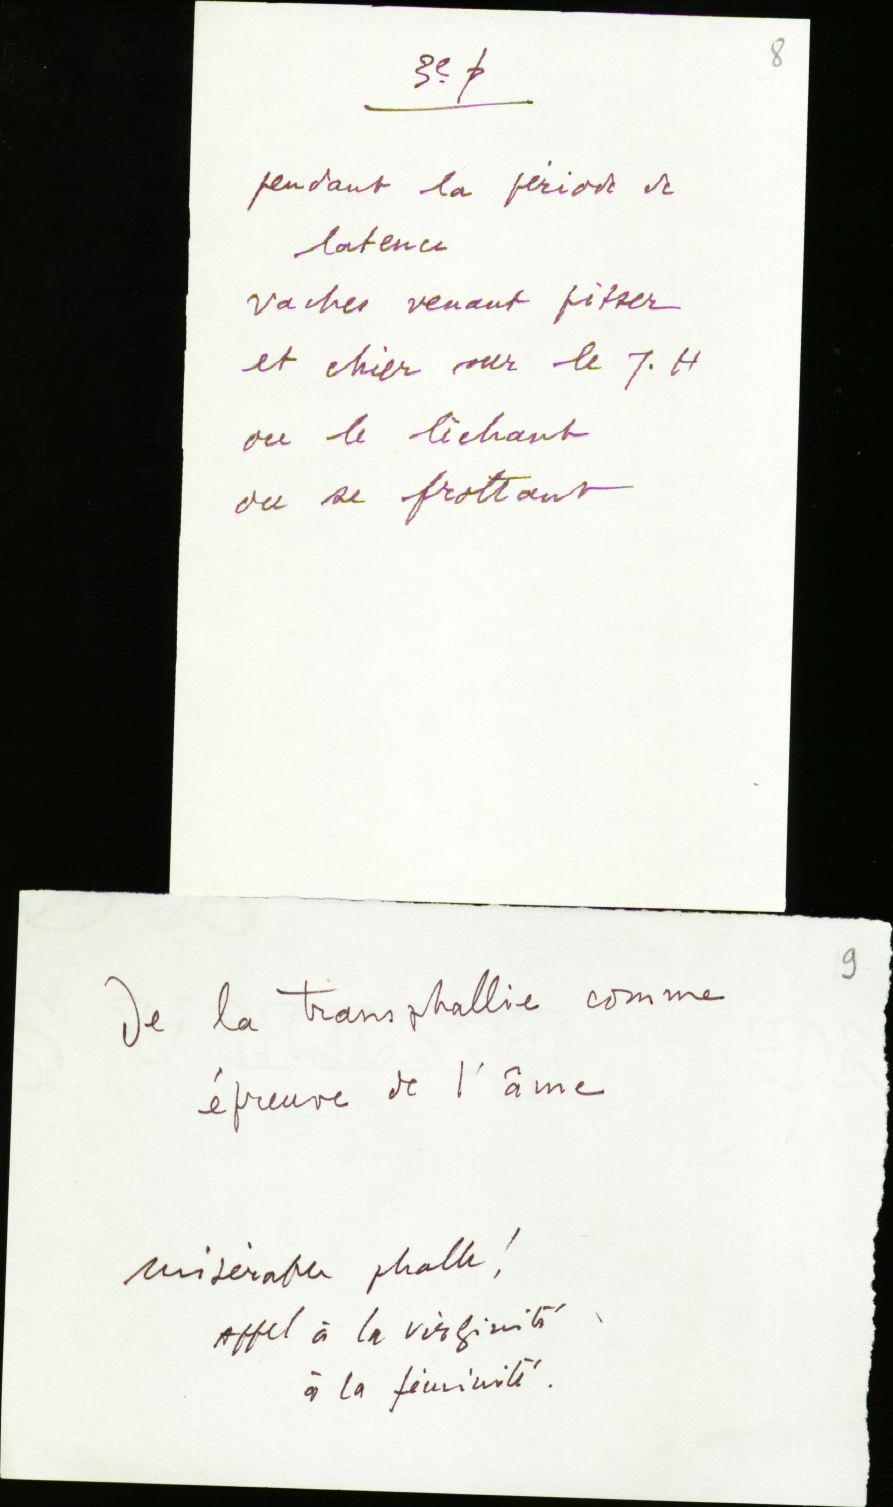 8
3e p
pendant la période de
latence
vaches venant pisser
et chier sur le J. H
ou le léchant
ou se frottant
9
De la transphallie comme
épreuve de l'âme
misérable phalle!
Appel à la virginité
à la féminité.